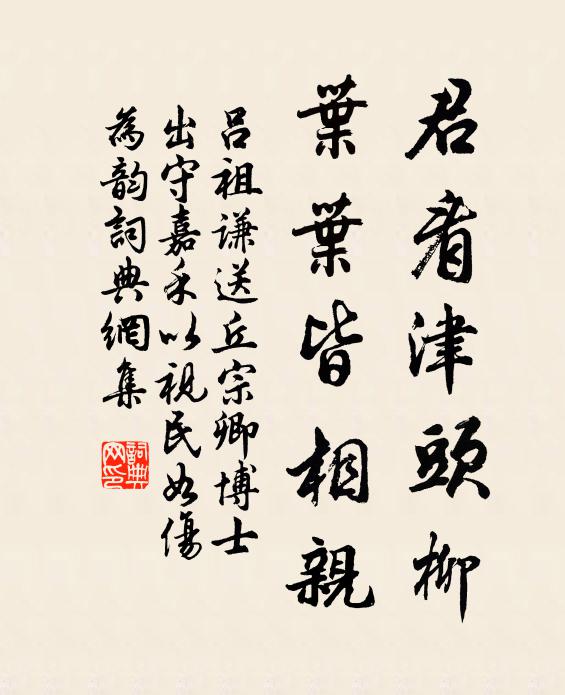 君看津頭柳
葉葉皆相親
呂祖謙送丘宗卿博士
出守嘉禾以視民如傷
為韵詞典網集
詞典网印